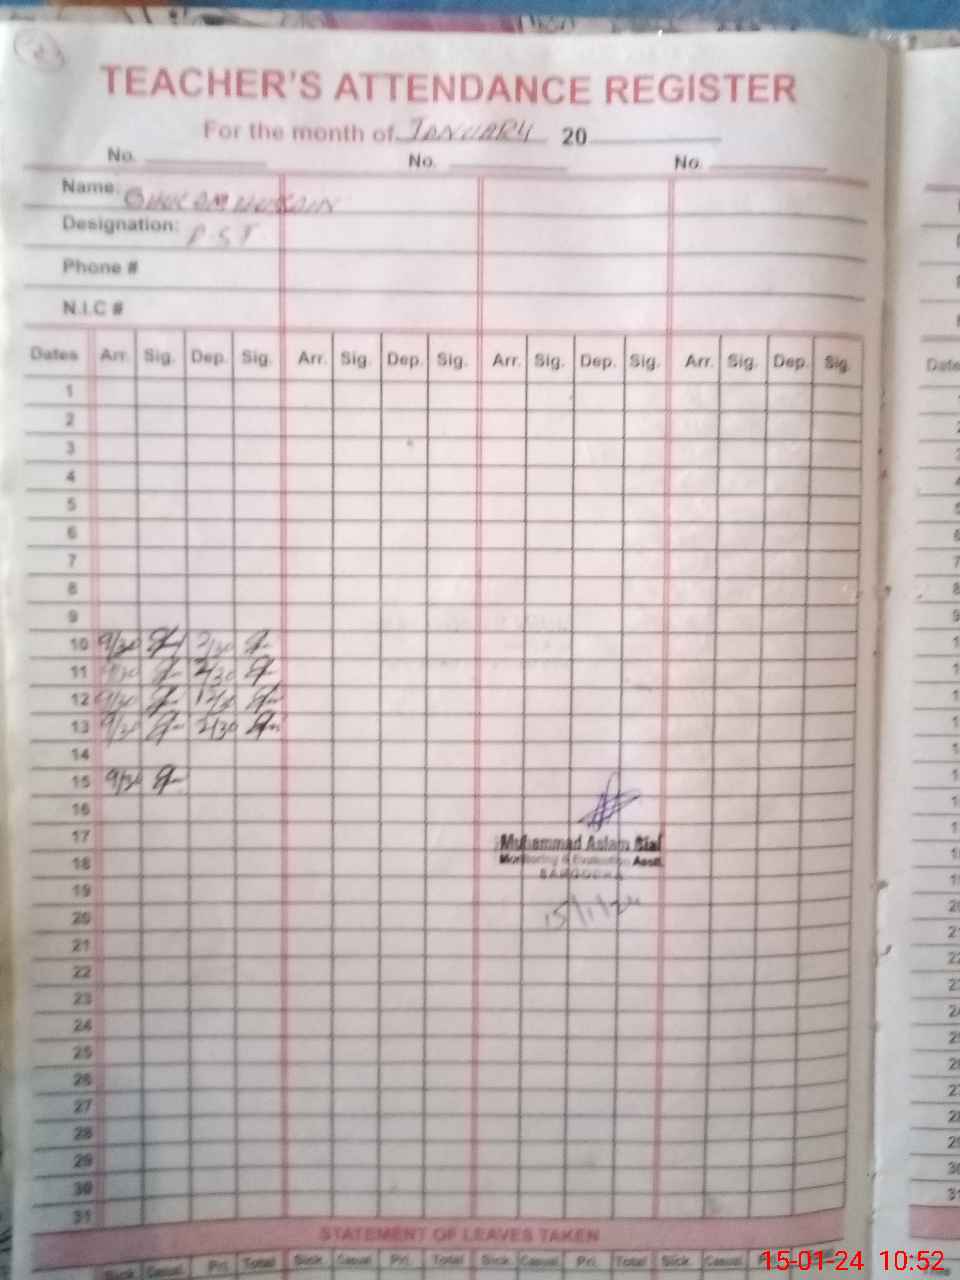 2
TEACHER'S ATTENDANCE REGISTER
For the month of JANUARY 20
No. No. No.
Name:
Designation: P.S.T
Phone #
N.I.C #
Dates Arr. Sig. Dep. Sig. Arr. Sig. Dep. Sig. Arr. Sig. Dep. Sig. Arr. Sig. Dep. Sig.
1
2
3
4
5
6
7
8
9
10 9/30 2/30
11 9/30 2/30
12 9/30
13 9/30 2/30
14
15 9/30
16
17
18
19
20
21
22
23
24
25
26
27
28
29
30
31
Muhammad Aslam Sial
Monitoring & Evaluation Asstt.
SARGODHA
15/1/24
STATEMENT OF LEAVES TAKEN
Sick. Casual. Pri. Total Sick. Casual. Pri. Total Sick. Casual. Pri. Total Sick. Casual. Pri. Total
15-01-24 10:52